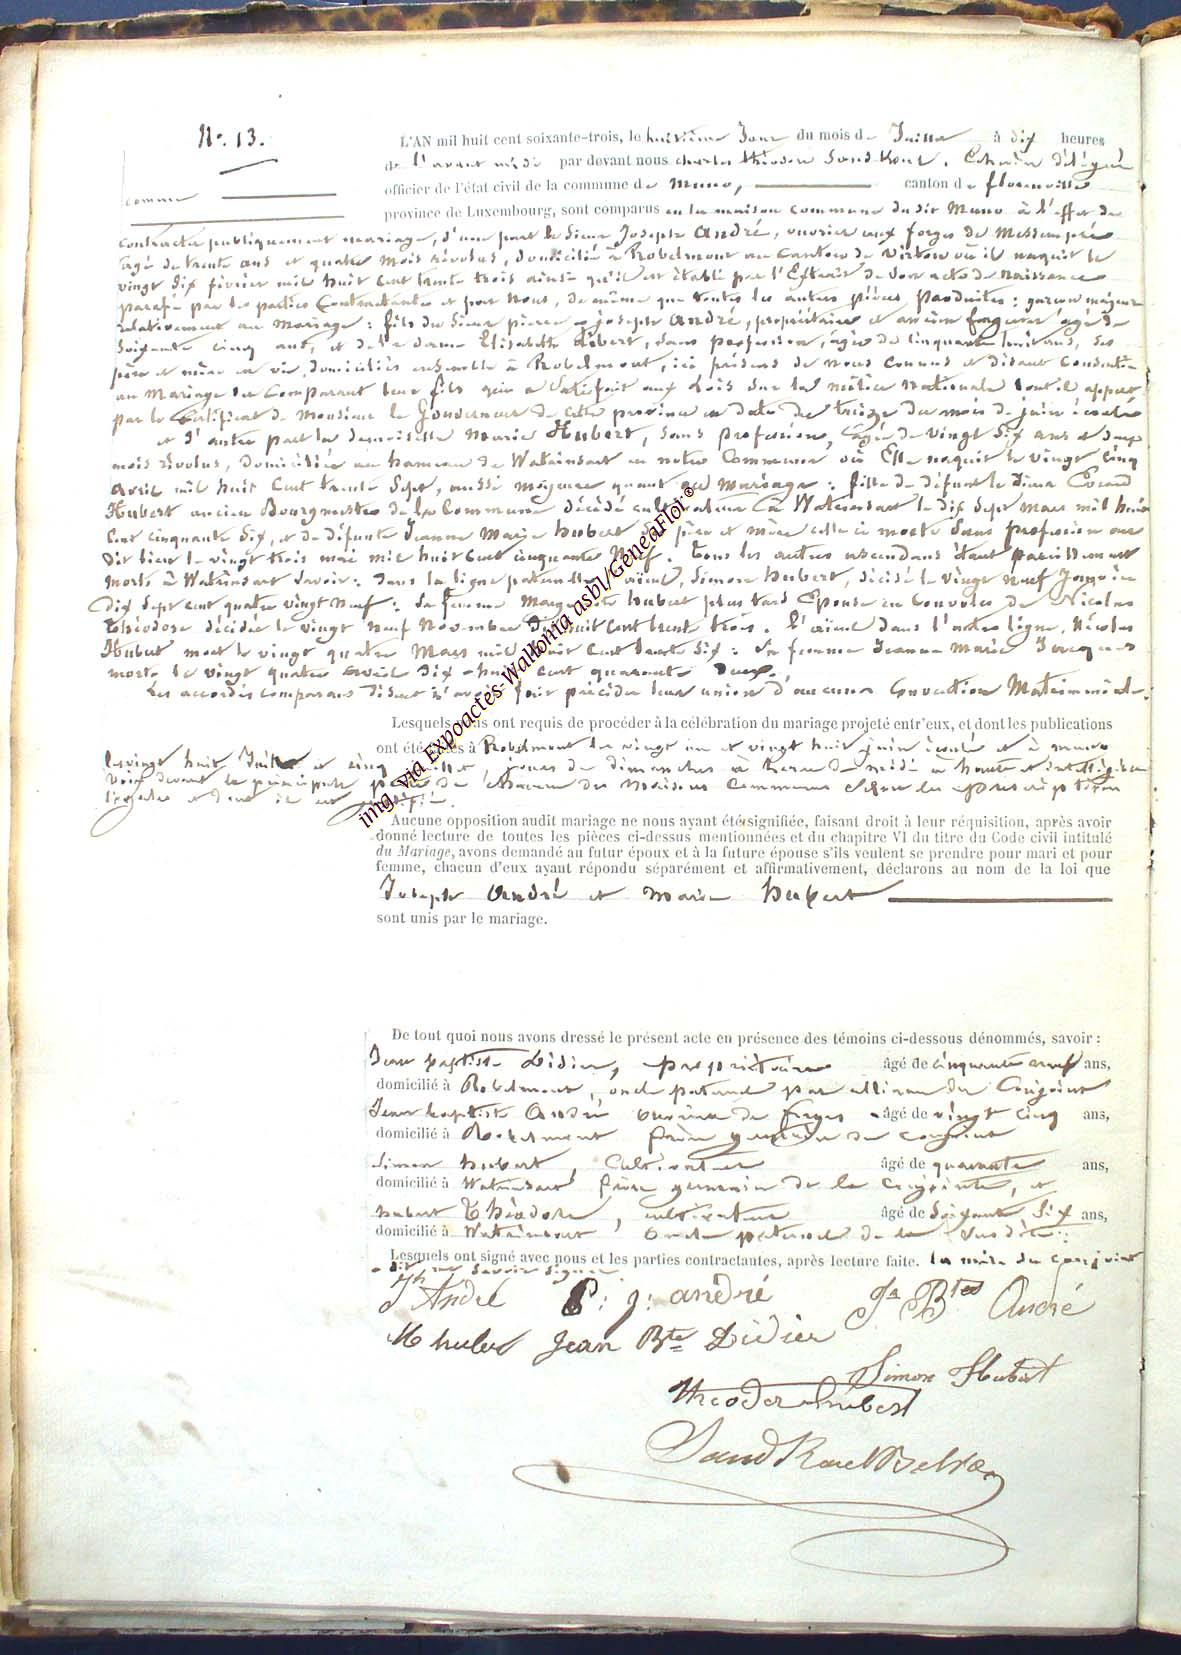 N.º 13.
L'AN mil huit cent soixante-trois, le huitième Jour du mois de Juillet à dix heures
de l'avant midi par devant nous charles théodore Echevin délégué
officier de l'état civil de la commune de Muno, canton de florenville
comme
province de Luxembourg, sont comparus en la maison commune du dit Muno à l'effet de
contracter publiquement mariage, d'une part le Sieur Joseph André, ouvrier aux forges de Messempré
agé de trente ans et quatre mois révolus, domicilié à Robelmont au Canton de Virton où il naquit le
vingt Six février mil huit cent trente trois ainsi qu'il est établi par l'Extrait de son acte de naissance
parafé par les parties Contractantes et par Nous, de même que toutes les autres pièces Produites : garçon majeur
relativement au Mariage : fils du Sieur pierre-joseph André, propriétaire et ancien forgeur agé de
Soixante cinq ans, et de la dame Elisabeth Gibert, Sans profession, agée de cinquante huit ans, Ses
père et mère en vie domiciliés ensemble à Robelmont, ici présens de nous connus et disant Consentir
au Mariage du Comparant leur fils qui a Satisfait aux lois Sur la milice Nationale dont il appert
par le Certificat de Monsieur le Gouverneur de cette province en date du treize du mois de juin écoulé
et d'autre part la demoiselle Marie Hubert, Sans profession, agée de vingt Six ans et deux
mois révolus, domiciliée au hameau de Watrinsart en notre Commune où Elle naquit le vingt cinq
avril mil huit Cent trente Sept, aussi majeure quant au Mariage : fille de défunt le Sieur
Hubert ancien Bourgmestre de la Commune décédé cultivateur à Watrinsart le dix Sept Mars mil huit
Cent cinquante Six, et de défunte Jeanne Marie hubert Ses père et mère celle ci morte Sans profession au
dit lieu le vingt trois mai mil huit Cent cinquante Neuf. tous les autres ascendans étant pareillement
morts à Watrinsart Savoir : dans la ligne paternelle l'aïeul, Simon hubert, décédé le vingt neuf Janvier
dix Sept cent quatre vingt Neuf : Sa femme Marguerite hubert plus tard Epouse en Convoles de Nicolas
théodore décédée le vingt neuf Novembre dix huit cent trente trois. l'aïeul dans l'autre ligne, Nicolas
Hubert mort le vingt quatre Mars mil huit cent trente Six : Sa femme Jeanne Marie Jacques
morte le vingt quatre avril dix-huit cent quarante deux.
Les accordés comparans disent n'avoir fait précéder leur union d'aucune Convention Matrimoniale.
Lesquels nous ont requis de procéder à la célébration du mariage projeté entr'eux, et dont les publications
ont été faites à Robelmont les vingt un et vingt huit juin écoulé et à muno
les vingt huit Juin et cinq Juillet jours de dimanches à heure de midi à haute et intelligible
voix devant la principale porte de l'Maisons Communes Selon les prescriptions
légales et dont il est justifié.
Aucune opposition audit mariage ne nous ayant été signifiée, faisant droit à leur réquisition, après avoir
donné lecture de toutes les pièces ci-dessus mentionnées et du chapitre VI du titre du Code civil intitulé
du Mariage, avons demandé au futur époux et à la future épouse s'ils veulent se prendre pour mari et pour
femme, chacun d'eux ayant répondu séparément et affirmativement, déclarons au nom de la loi que
Joseph André et Marie hubert
sont unis par le mariage.
De tout quoi nous avons dressé le présent acte en présence des témoins ci-dessous dénommés, savoir :
Jean baptiste Didier, propriétaire âgé de cinquante neuf ans,
domicilié à Robelmont, oncle paternel par alliance du Conjoint
Jean baptiste André ouvrier de forges âgé de vingt cinq ans,
domicilié à Robelmont frère germain du conjoint
Simon hubert, Cultivateur âgé de quarante ans,
domicilié à Watrinsart frère germain de la conjointe, et
hubert théodore, cultivateur âgé de Soixante Six ans,
domicilié à Watrinsart Oncle paternel de la Susdite :
Lesquels ont signé avec nous et les parties contractantes, après lecture faite. la mère du conjoint
a dit ne savoir signer
Jh André P: j: andré Jn Bte André
M hubert Jean Bte Didier
Simon Hubert
théodore hubert
img. via Expoactes-Wallonia asbl/GénéaFlor®